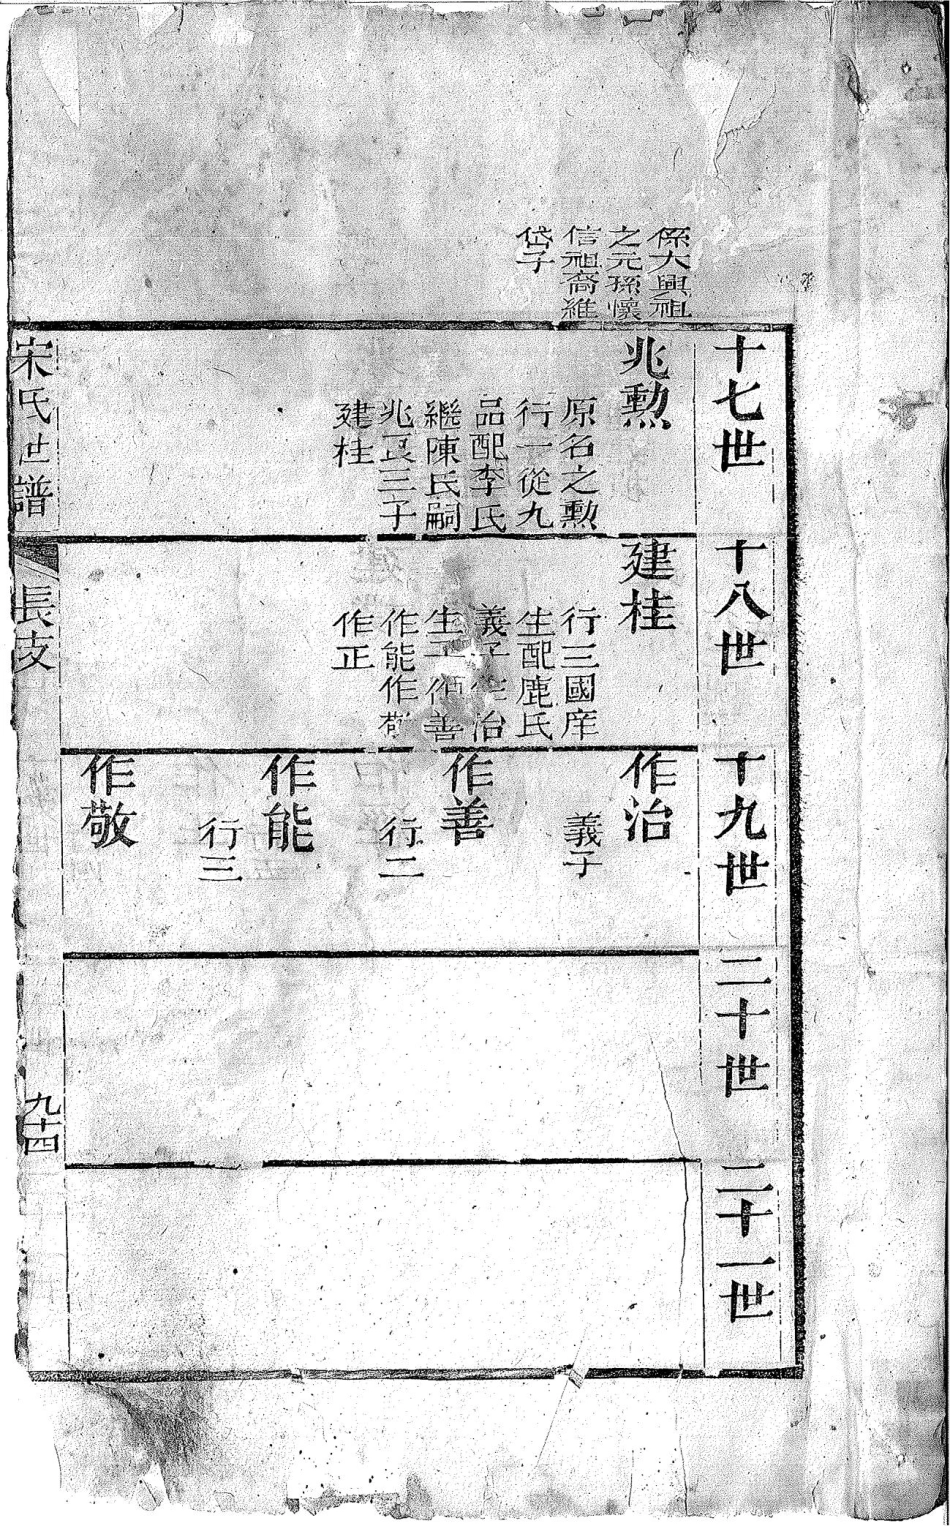 係大興祖
之元孫懷
信祖裔維
岱子
十七世
兆勲
原名之勲
行一從九
品配李氏
繼陳氏嗣
兆艮三子
建桂
十八世
建桂
行三國庠
生配鹿氏
義子作治
生子作善
作能作敬
作正
十九世
作治
義子
作善
行二
作能
行三
作敬
二十世
二十一世
宋氏世譜
長支
九十四